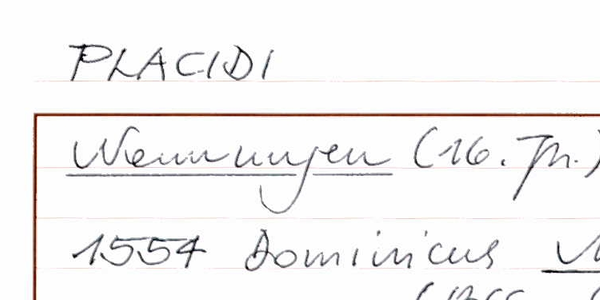 PLACIDI
Nennungen (16. Jh.)
1554 Dominicus